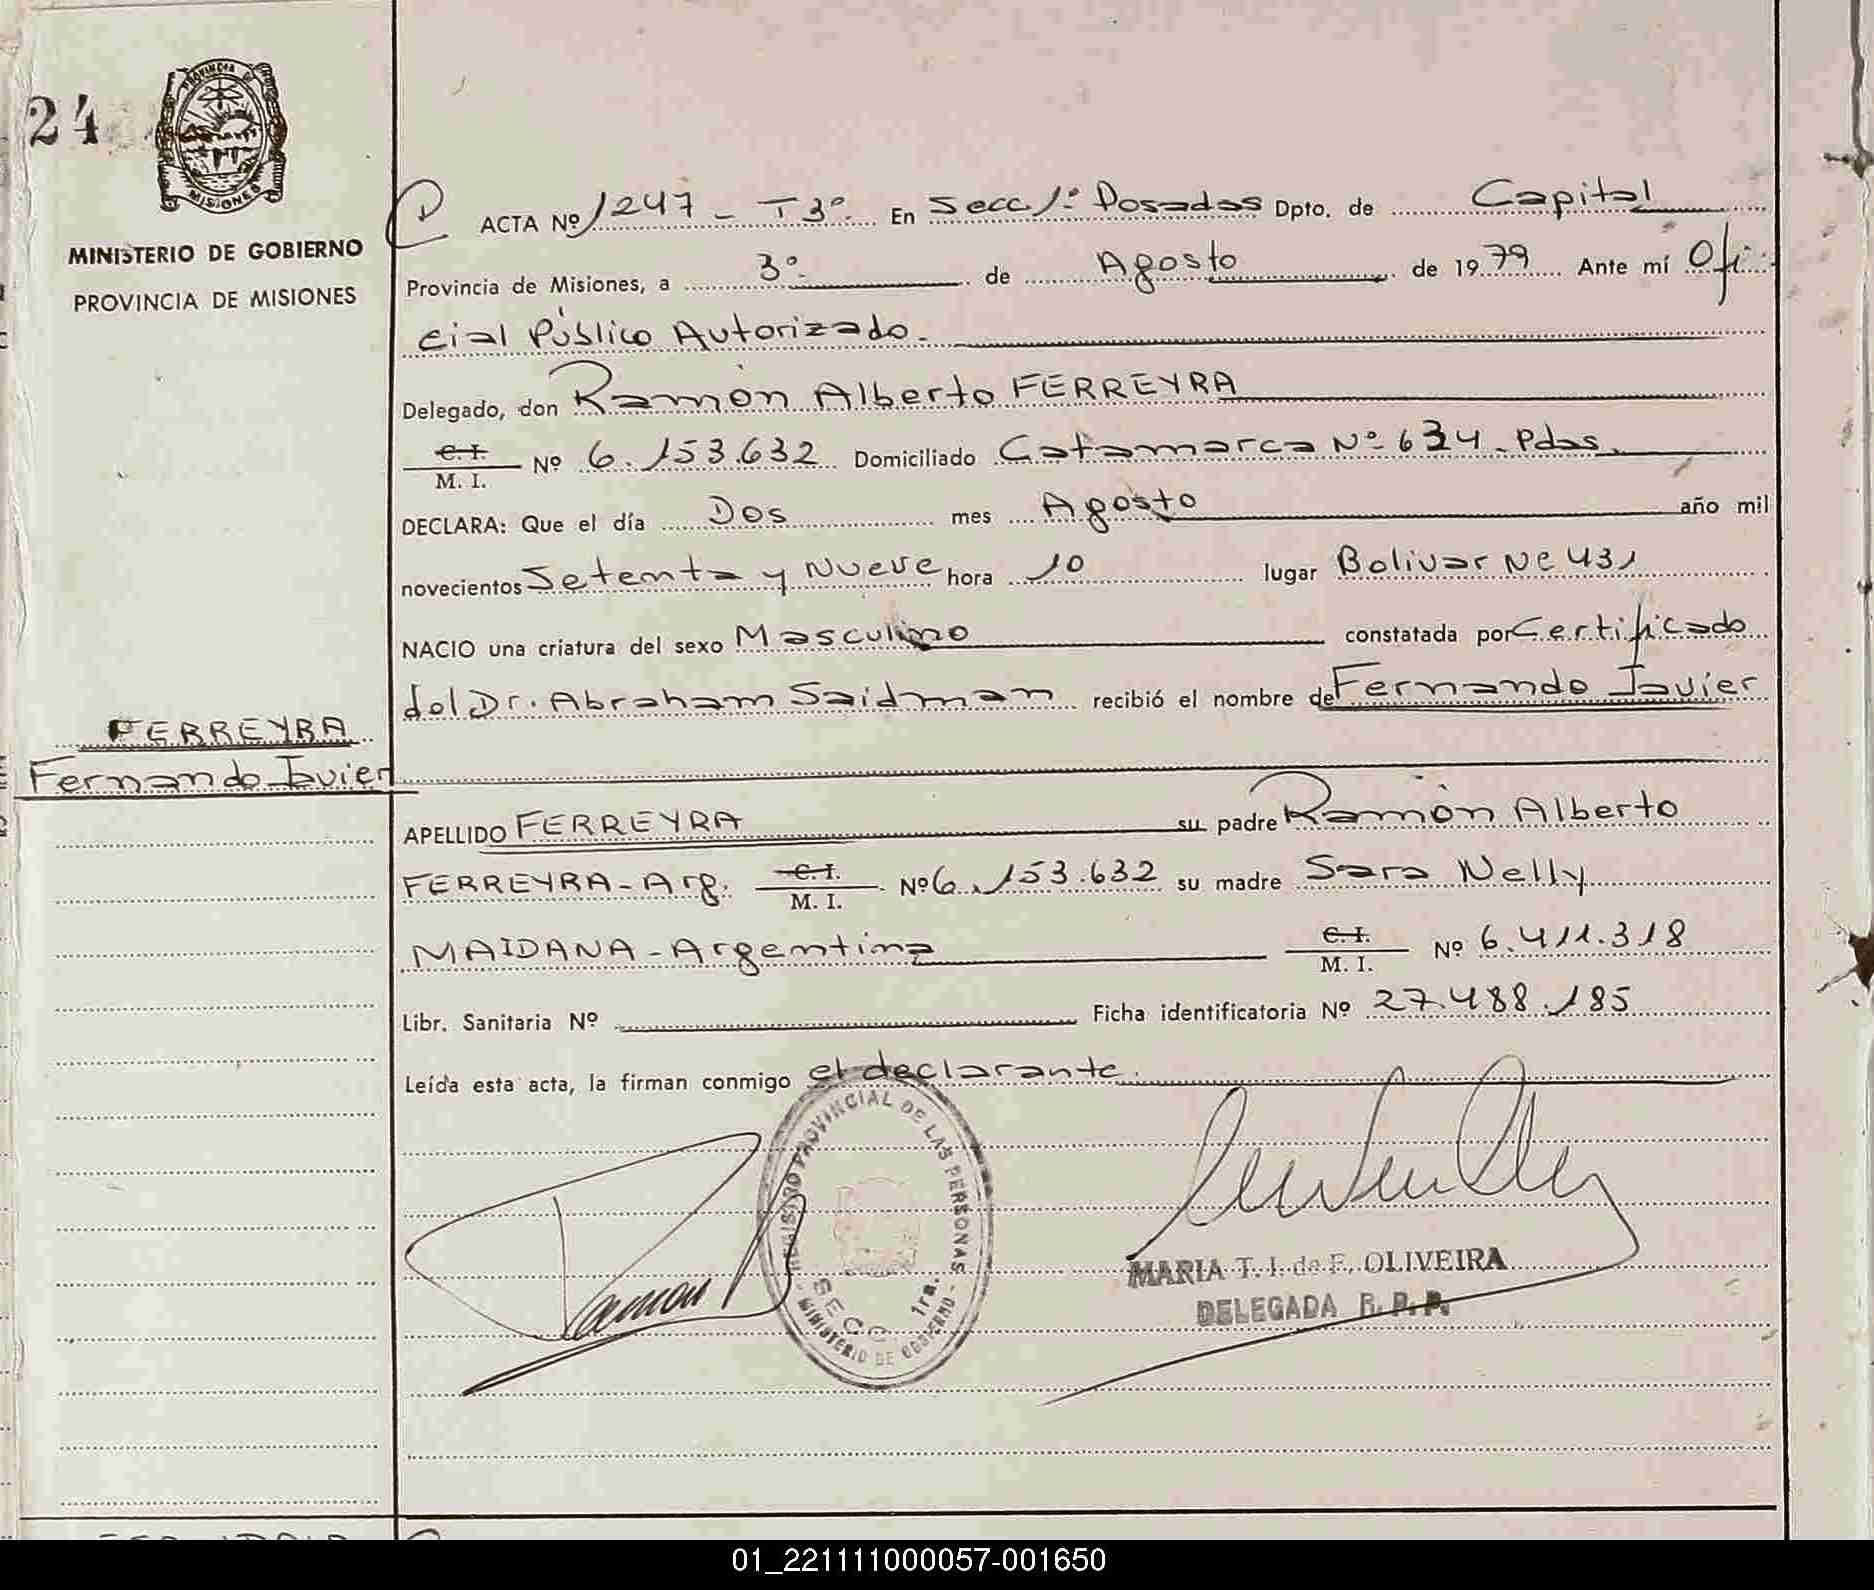 24
PROVINCIA DE
MISIONES
MINISTERIO DE GOBIERNO
PROVINCIA DE MISIONES
FERREYRA
Fernando Javier
ACTA Nº 1247 - T3º. En Secc. 1º Posadas Dpto. de Capital
Provincia de Misiones, a 3º. de Agosto de 1979 Ante mí Ofi
cial Público Autorizado.
Delegado, don Ramón Alberto FERREYRA
C.I.
M. I. Nº 6.153.632 Domiciliado Catamarca Nº 634 - Pdas.
DECLARA: Que el día Dos mes Agosto año mil
novecientos Setenta y Nueve hora 10 lugar Bolivar Nº 431
NACIO una criatura del sexo Masculino constatada por Certificado
del Dr. Abraham Saidman recibió el nombre de Fernando Javier
APELLIDO FERREYRA su padre Ramón Alberto
FERREYRA - Arg. C.I. M. I. Nº 6.153.632 su madre Sara Nelly
MAIDANA - Argentina C.I. M. I. Nº 6.411.318
Libr. Sanitaria Nº Ficha identificatoria Nº 27.488.185
Leída esta acta, la firman conmigo el declarante.
REGISTRO PROVINCIAL DE LAS PERSONAS
SECC. 1ra.
MINISTERIO DE GOBIERNO
Ramon
MARIA T. I. de F. OLIVEIRA
DELEGADA R. P. P.
01_221111000057-001650